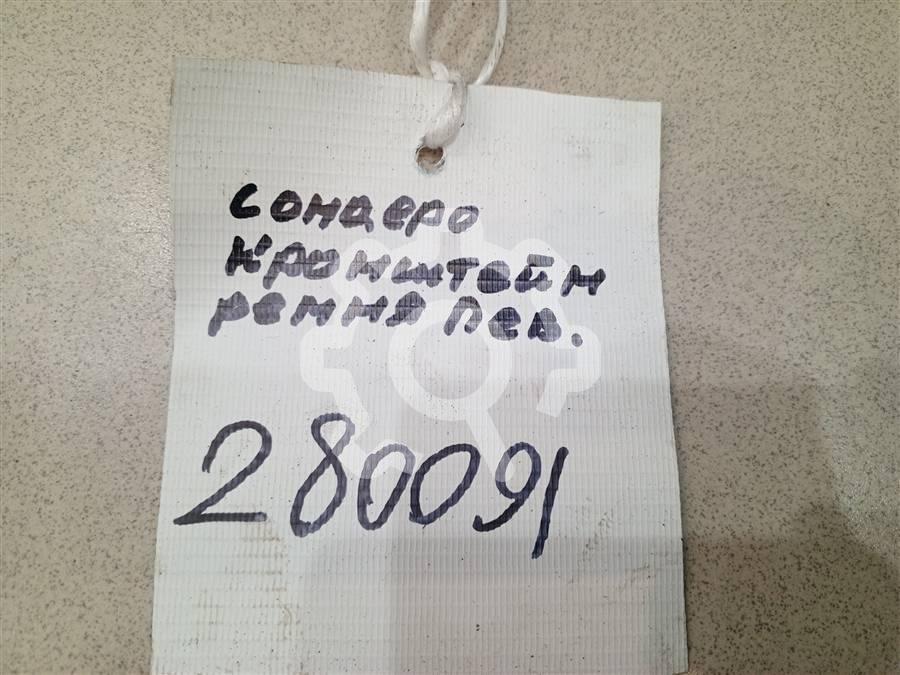 сондеро
кронштейн
ремня лев.
280091